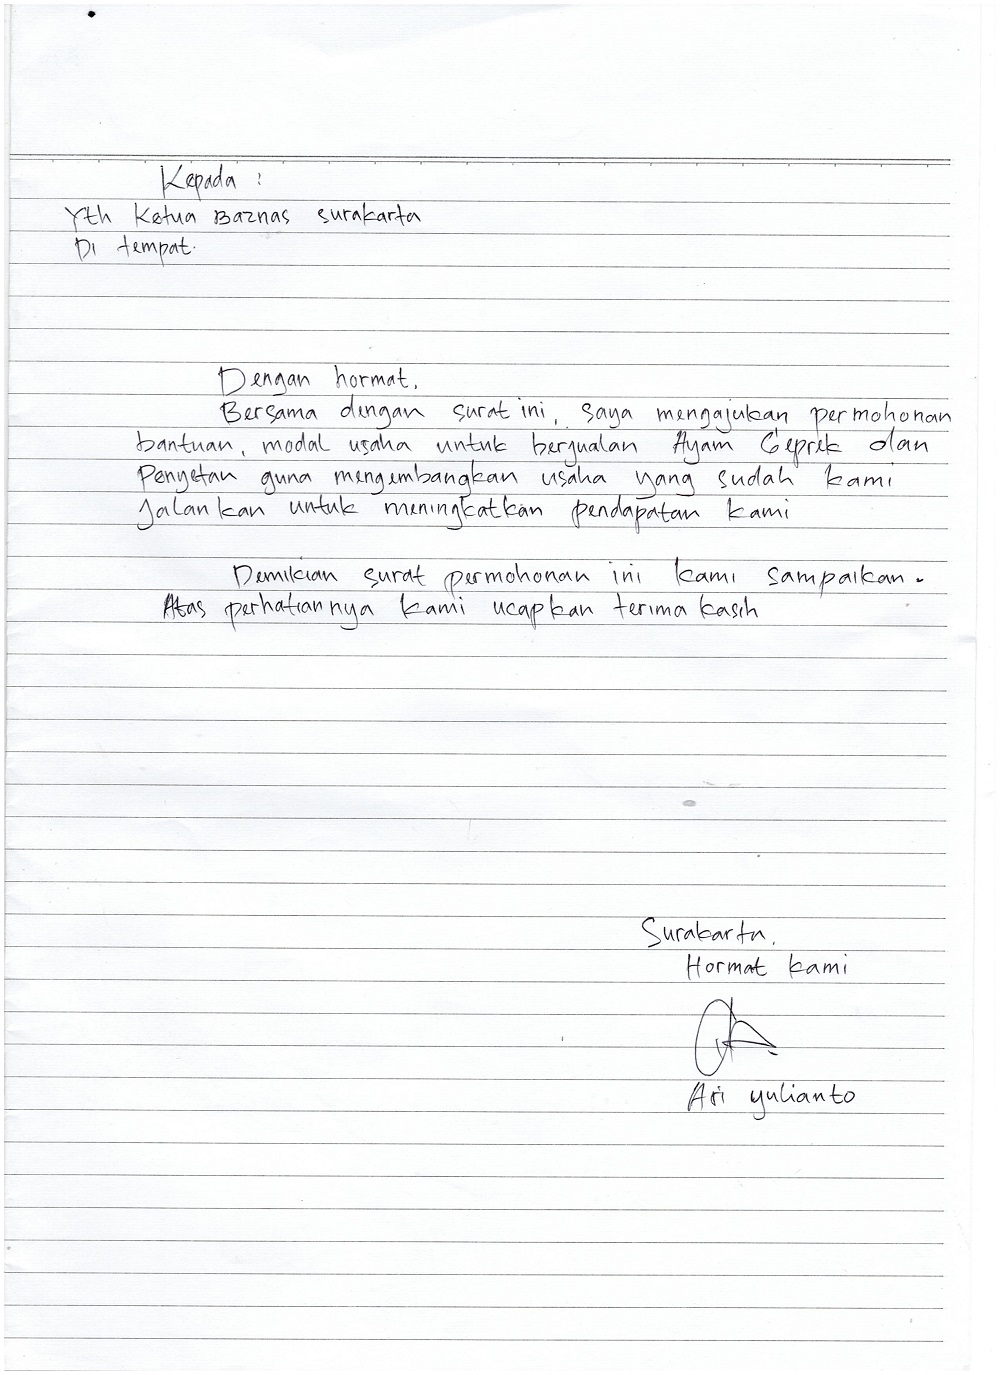 Kepada :
Yth Ketua Baznas Surakarta
Di tempat.
Dengan hormat,
Bersama dengan surat ini, saya mengajukan permohonan
bantuan, modal usaha untuk berjualan Ayam Geprek dan
Penyetan guna mengembangkan usaha yang sudah kami
Jalankan untuk meningkatkan pendapatan kami
Demikian surat permohonan ini kami sampaikan.
Atas perhatiannya kami ucapkan terima kasih
Surakarta,
Hormat kami
Ari yulianto